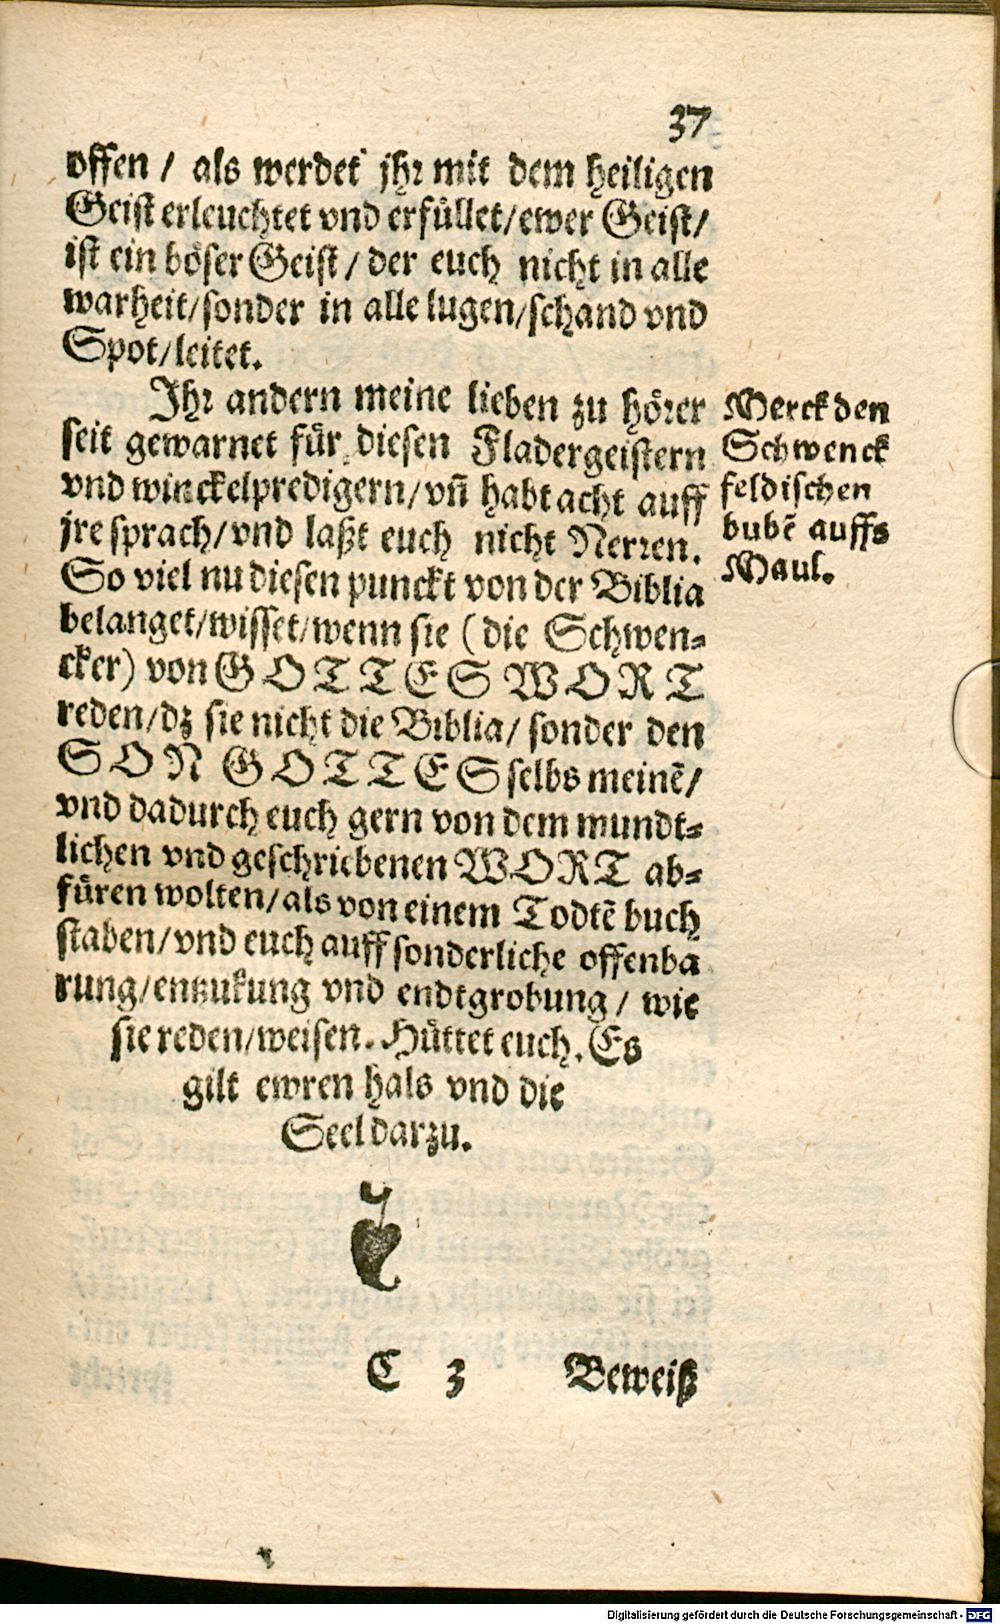 37
offen / als werdet jhr mit dem heiligen
Geist erleuchtet vnd erfüllet/ewer Geist/
ist ein böser Geist / der euch nicht in alle
warheit/sonder in alle lugen/schand vnd
Spot/leitet.
Jhr andern meine lieben zu hörer
seit gewarnet für diesen Fladergeistern
vnd winckelpredigern/vñ habt acht auff
jre sprach/vnd laßt euch nicht Nerren.
So viel nu diesen punckt von der Biblia
belanget/wisset/wenn sie (die Schwen-
cker) von GOTTES WORT
reden/dz sie nicht die Biblia/sonder den
SON GOTTES selbs meinẽ/
vnd dadurch euch gern von dem mundt-
lichen vnd geschriebenen WORT ab-
füren wolten/als von einem Todtẽ buch
staben/vnd euch auff sonderliche offenba
rung/entzukung vnd endtgrobung / wie
sie reden/weisen. Hüttet euch. Es
gilt ewren hals vnd die
Seel darzu.
Merck den
Schwenck
feldischen
bubẽ auffs
Maul.
C 3 Beweiß
Digitalisierung gefördert durch die Deutsche Forschungsgemeinschaft - DFG